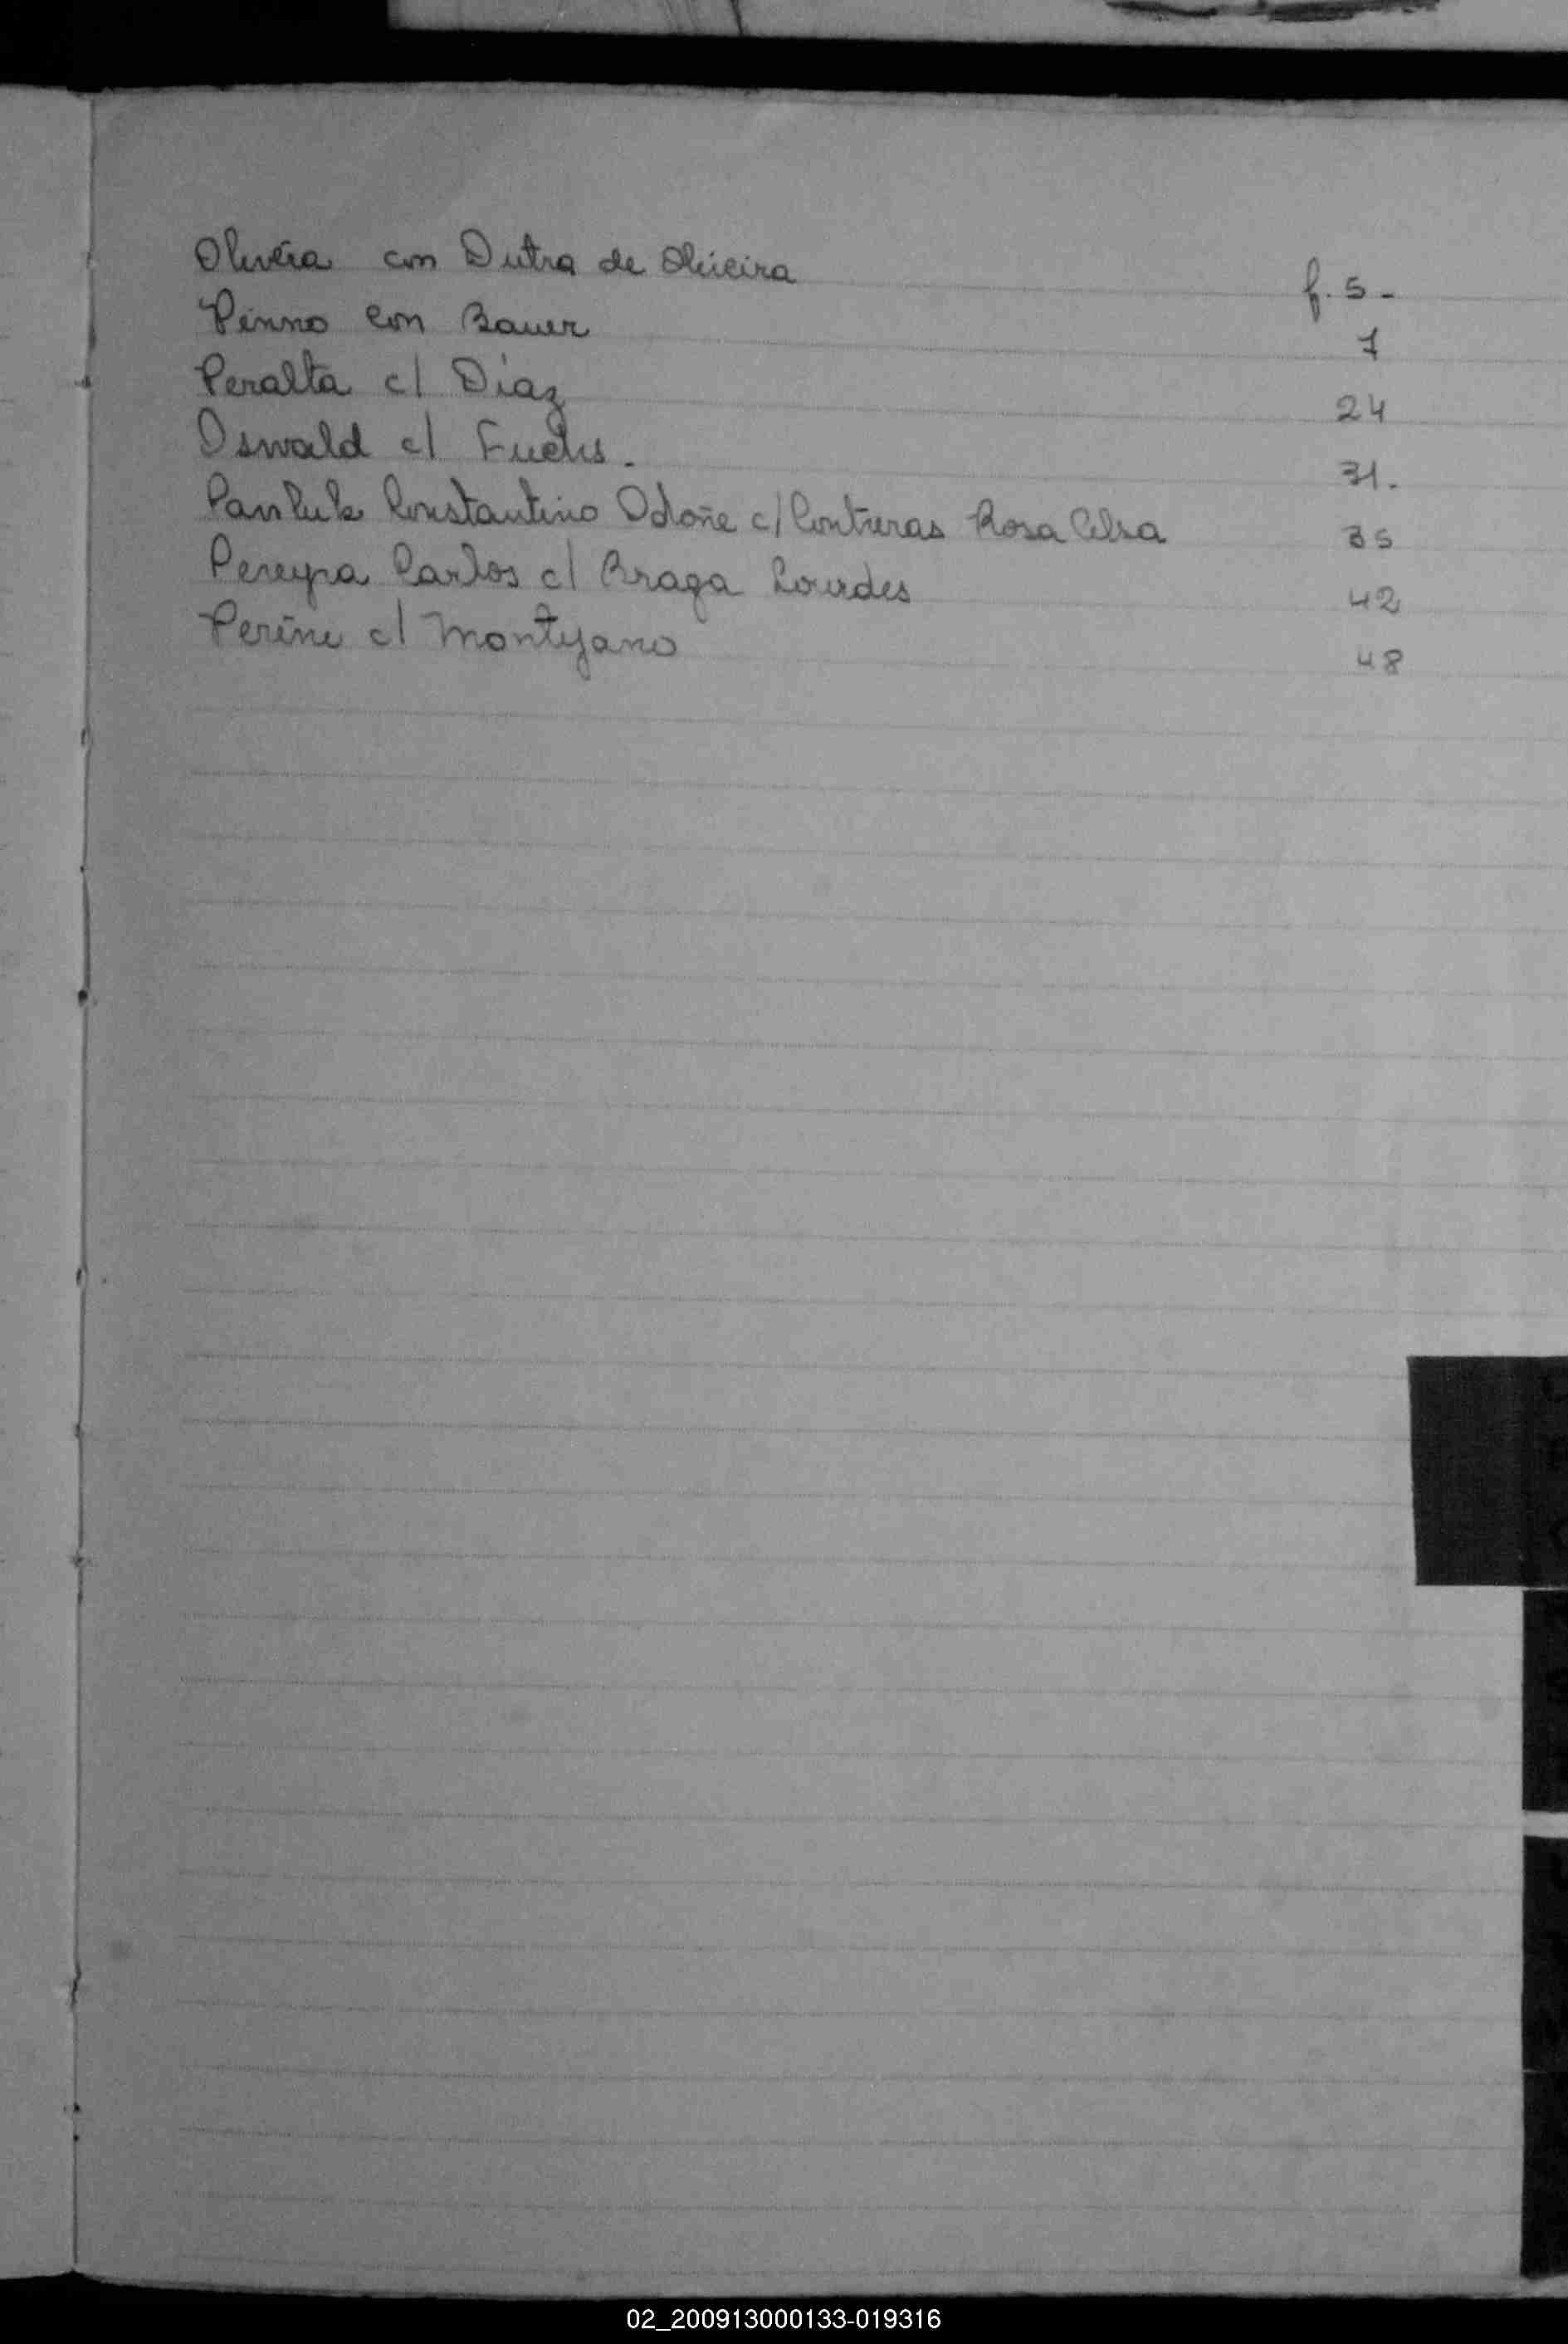 Oliveira con Dutra de Oliveira f. 5-
Pinno con Bauer 7
Peralta c/ Díaz 24
Oswald c/ Fuchs. 31.
Pawluk Constantino Odoñe c/ Contreras Rosa Celsa 35
Pereyra Carlos c/ Braga Lourdes 42
Perine c/ Montejano 48
02_200913000133-019316